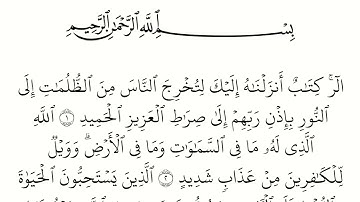 بِسْمِ ٱللَّهِ ٱلرَّحْمَٰنِ ٱلرَّحِيمِ
الٓرۚ كِتَٰبٌ أَنزَلْنَٰهُ إِلَيْكَ لِتُخْرِجَ ٱلنَّاسَ مِنَ ٱلظُّلُمَٰتِ إِلَى
ٱلنُّورِ بِإِذْنِ رَبِّهِمْ إِلَىٰ صِرَٰطِ ٱلْعَزِيزِ ٱلْحَمِيدِ ۝١ ٱللَّهِ
ٱلَّذِى لَهُۥ مَا فِى ٱلسَّمَٰوَٰتِ وَمَا فِى ٱلْأَرْضِۗ وَوَيْلٌ
لِّلْكَٰفِرِينَ مِنْ عَذَابٍ شَدِيدٍ ۝٢ ٱلَّذِينَ يَسْتَحِبُّونَ ٱلْحَيَوٰةَ